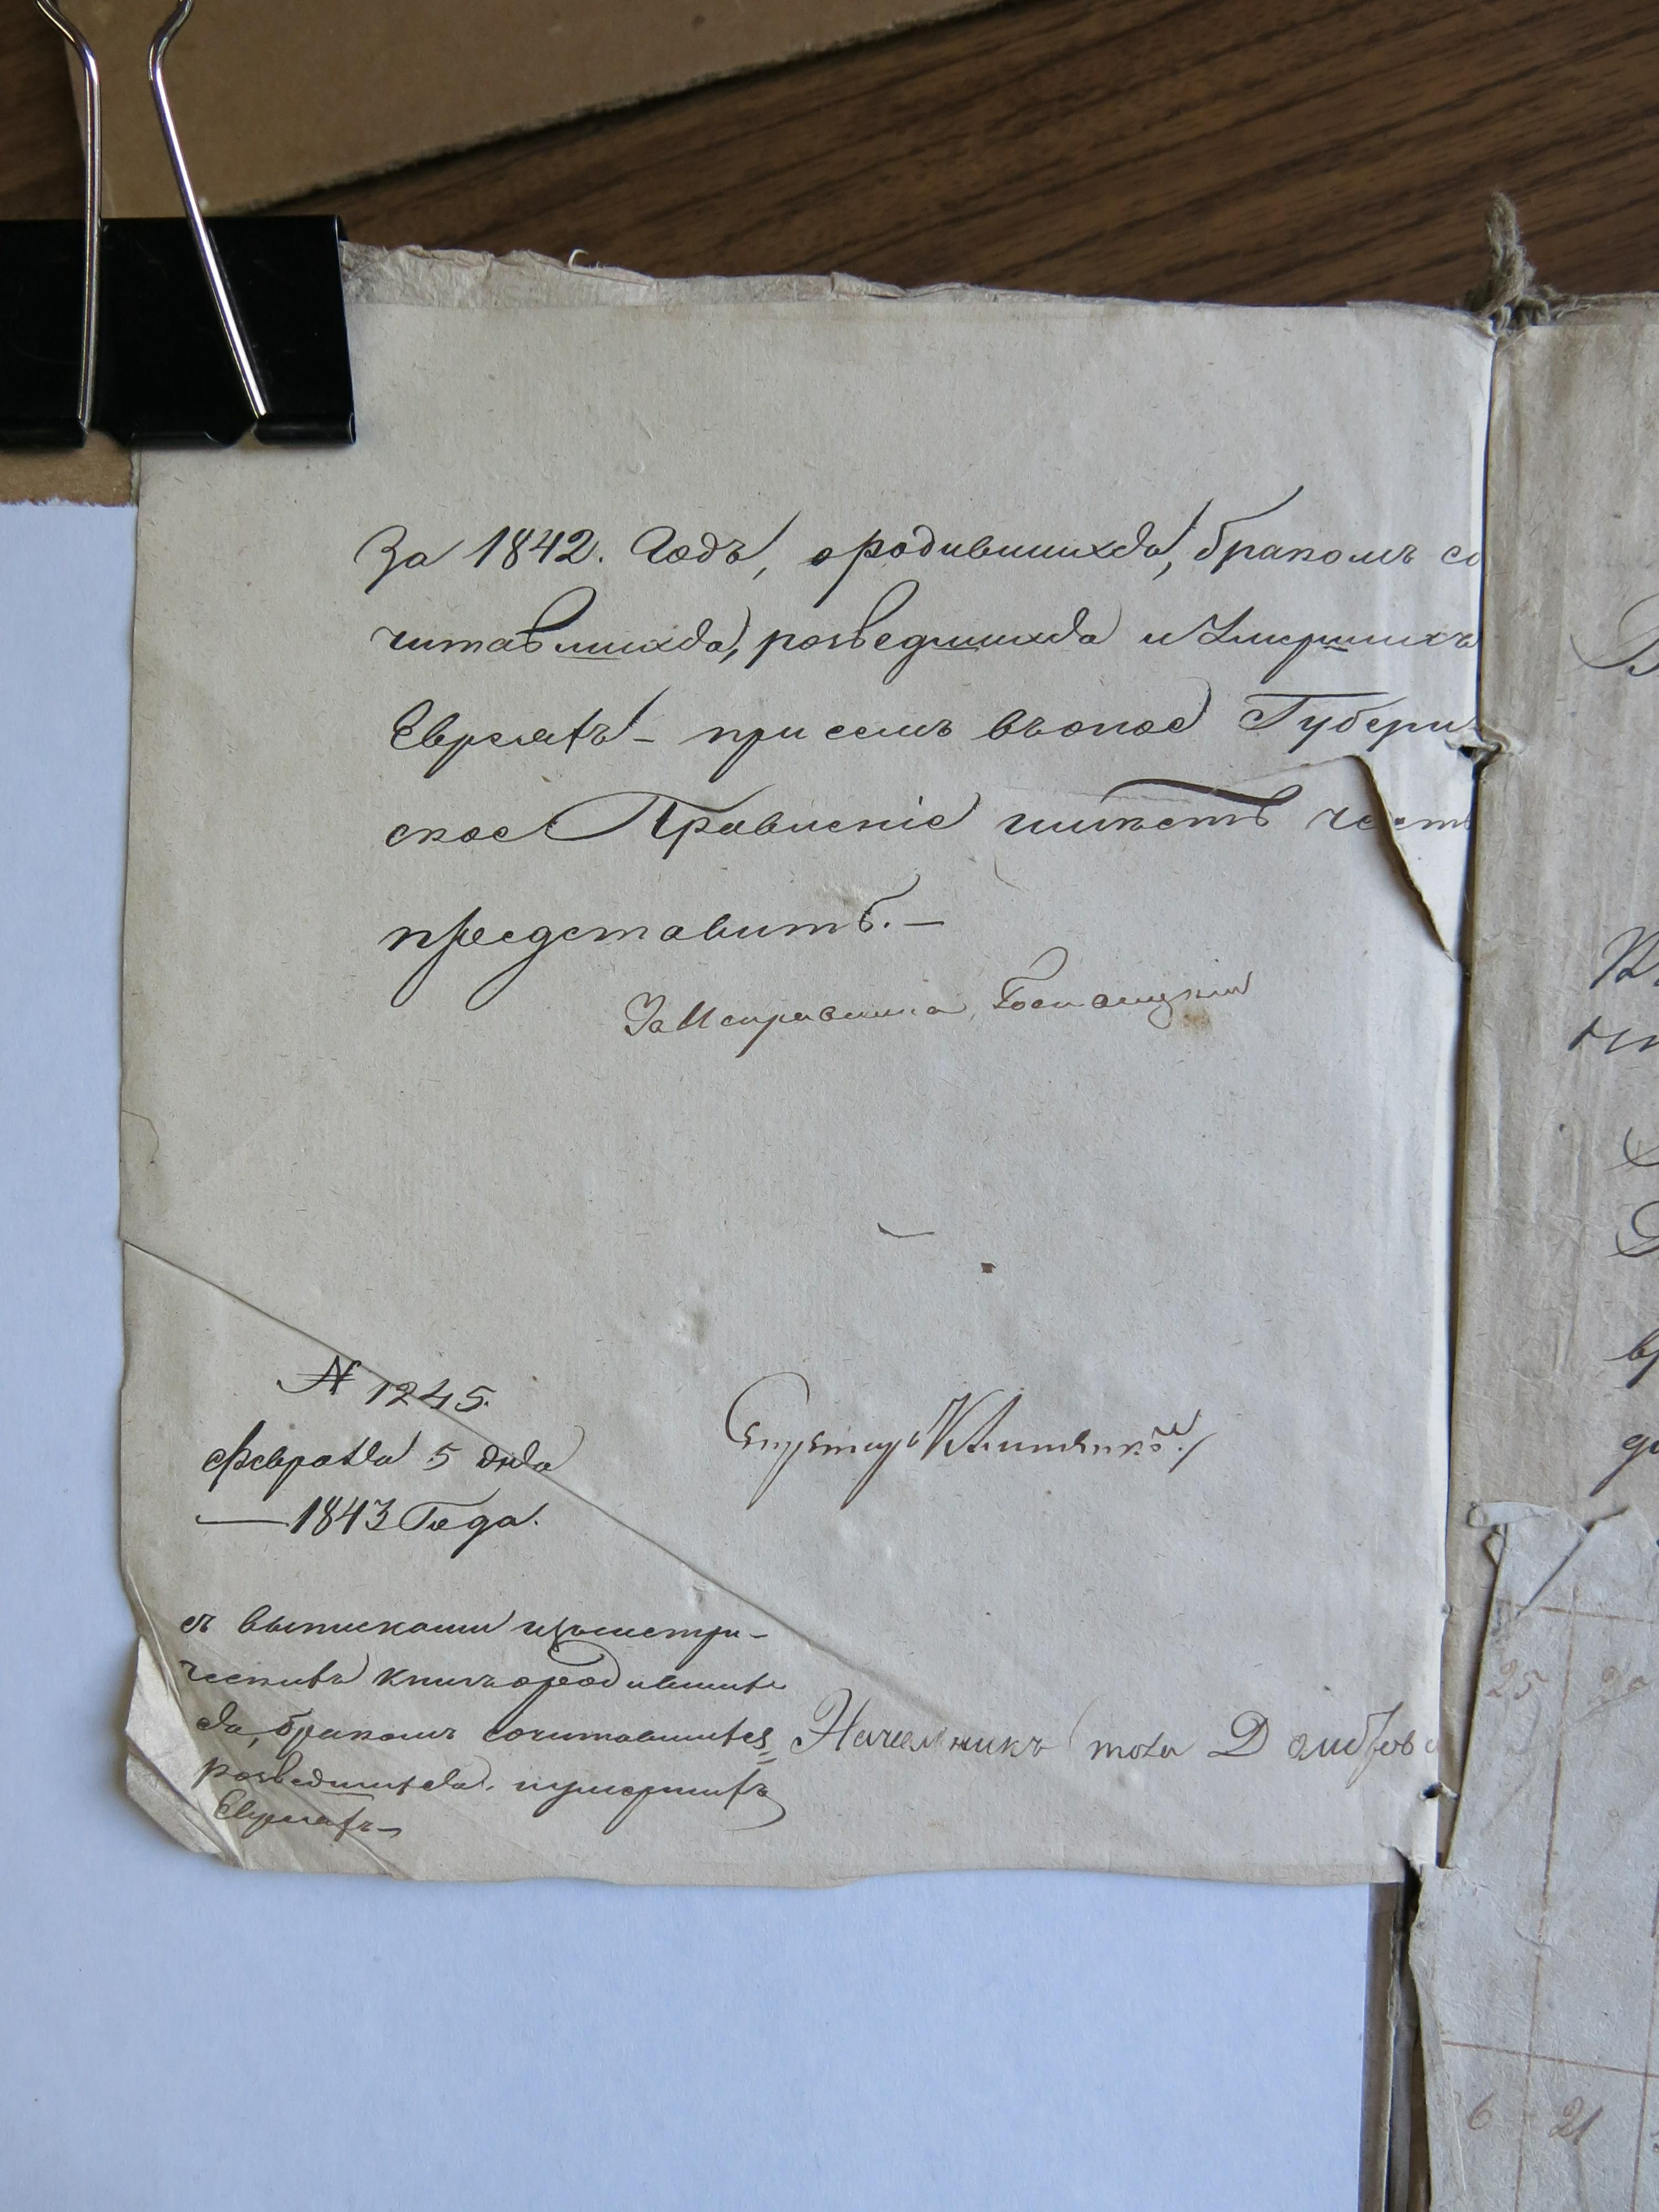 За 1842. Годъ, о родившихся, бракомъ со
читавшихся, розведшихся и умершихъ
Евреяхъ – при семъ въ оное Губерн
ское Правленіе имѣетъ честь
представить. –
За Исправника
№ 1245.
Февраля 5 дня
— 1843 Года.
Секретарь
съ выписками изъ метри-
ческихъ книгъ о родившихъ
ся, бракомъ сочитавшихся
розведшихся. и умершихъ
Евреяхъ –
Начельникъ тола Домбров
25
6 21